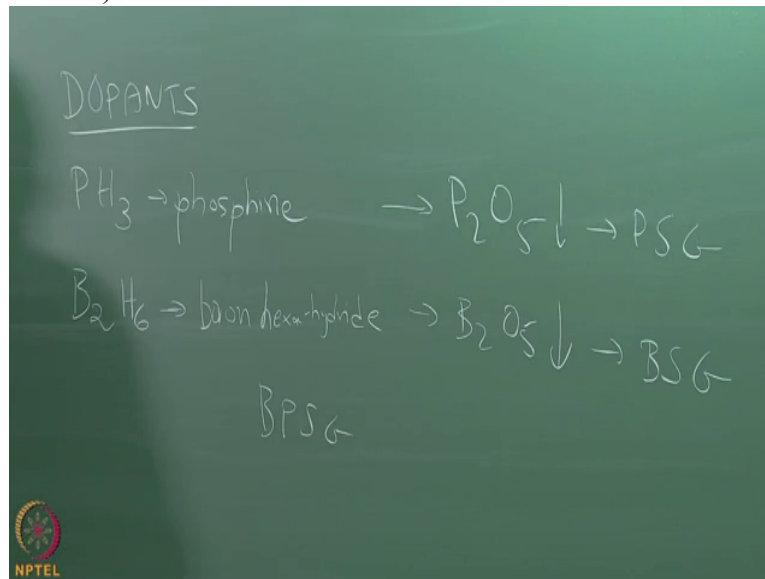 DOPANTS
PH3 → phosphine → P2O5 ↓ → PSG
B2H6 → boron hexa-hydride → B2O5 ↓ → BSG
BPSG
NPTEL